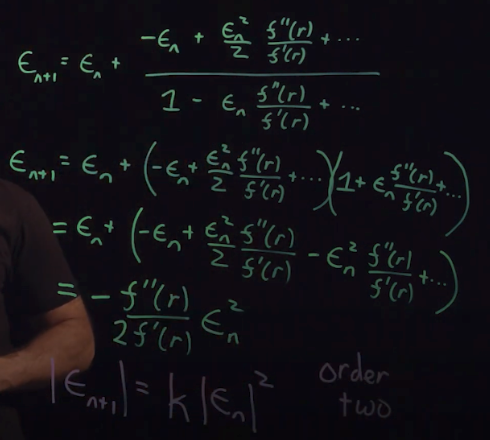 ϵₙ₊₁ = ϵₙ + (-ϵₙ + ϵₙ²/2 f''(r)/f'(r) + ···)/(1 - ϵₙ f''(r)/f'(r) + ···)
ϵₙ₊₁ = ϵₙ + (-ϵₙ + ϵₙ²/2 f''(r)/f'(r) + ···)(1 + ϵₙ f''(r)/f'(r) + ···)
= ϵₙ + (-ϵₙ + ϵₙ²/2 f''(r)/f'(r) - ϵₙ² f''(r)/f'(r) + ···)
= - f''(r)/2f'(r) ϵₙ²
|ϵₙ₊₁| = k|ϵₙ|² order two